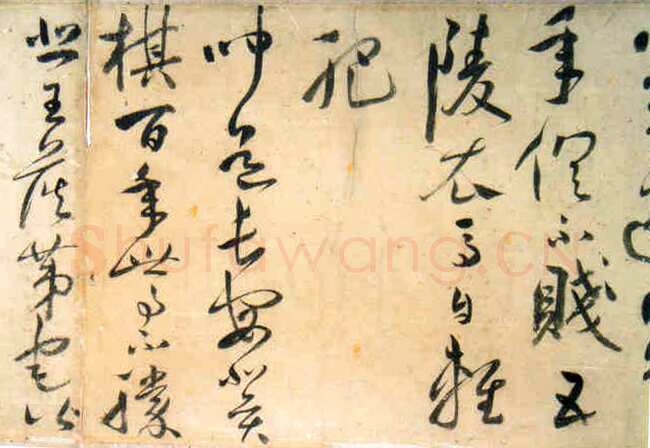 年俱不賤五
陵衣馬自輕
肥
聞道長安似奕
棋百年世事不勝
悲王侯第宅皆
Shufawang.CN